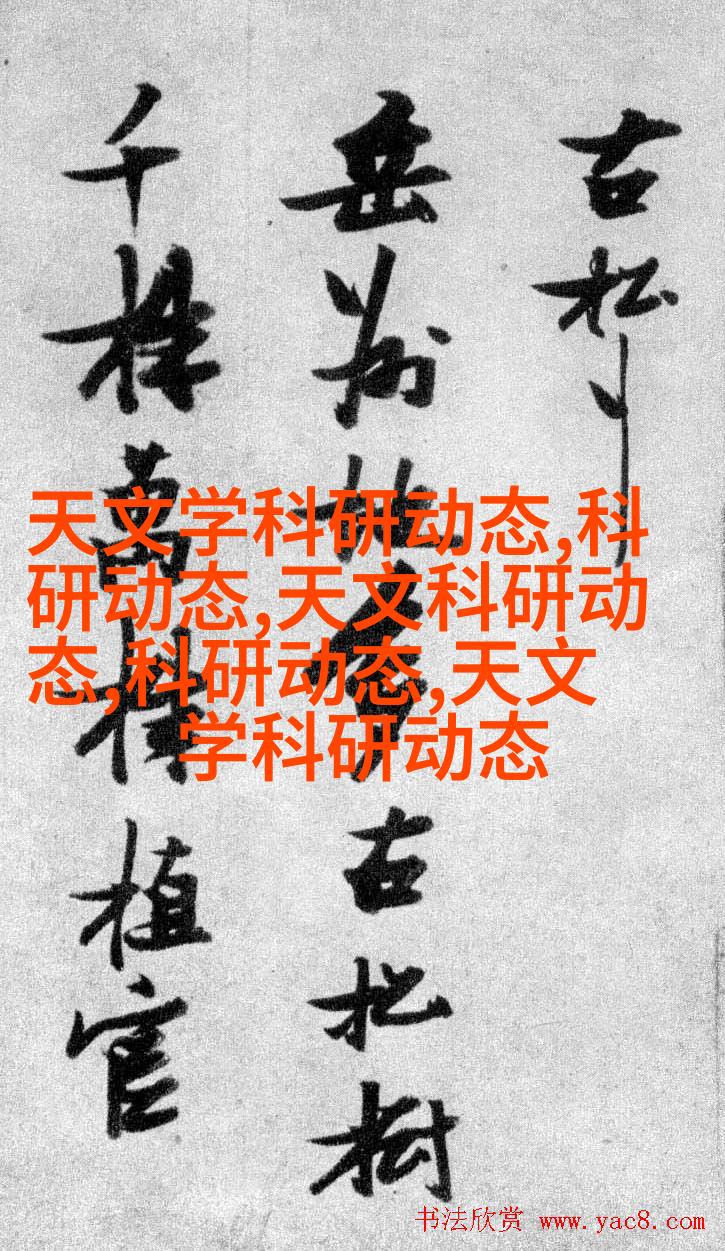 古松
岳州多古松樹
千株萬株植官
天文学科研动态,科
研动态,天文科研动
态,科研动态,天文
学科研动态
书法欣赏 www.yac8.com